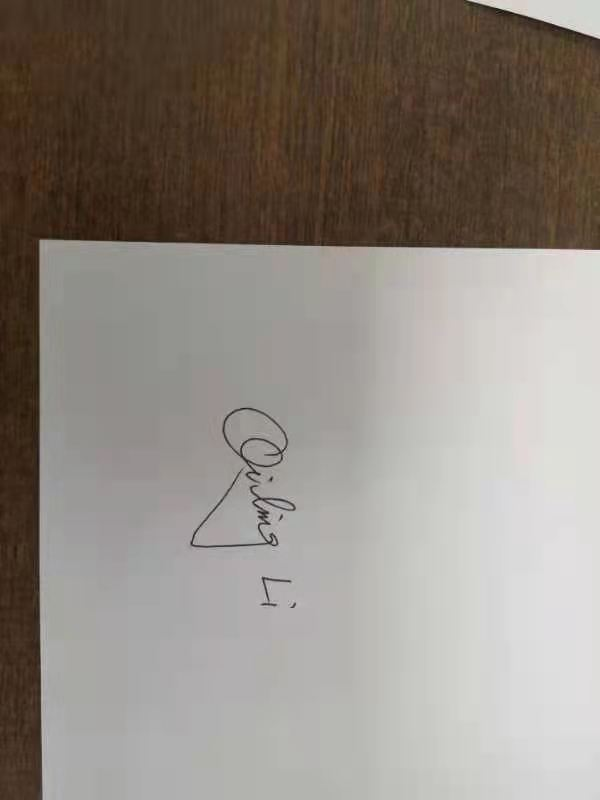 Qinling Li